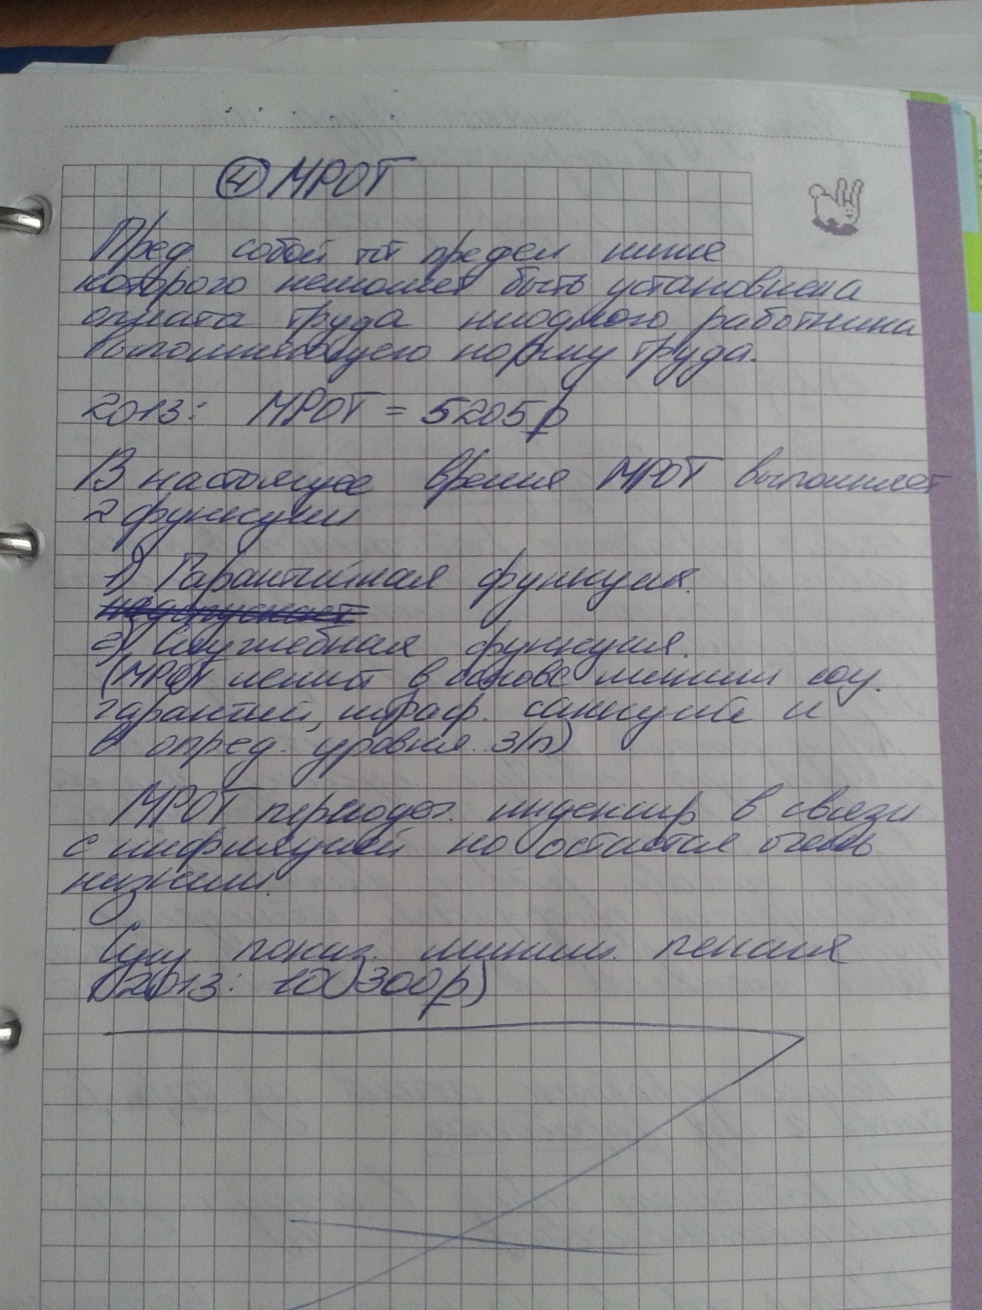 ④ МРОТ
Пред собой тот предел ниже
которого неможет быть установлена
оплата труда ниодного работника
выполнившего норму труда.
2013: МРОТ = 5205р
В настоящее время МРОТ выполняет
2 функции
1) Гарантийная функция.
недопускает
2) Служебная функция.
(МРОТ лежит в основе миним соц.
гарантий, штраф. санкций и
в опред. уровня з/п)
МРОТ периодич. индексир в связи
с инфляцией но остается очень
низким.
Сущ показ. миним. пенсия
(2013: 10 300р)